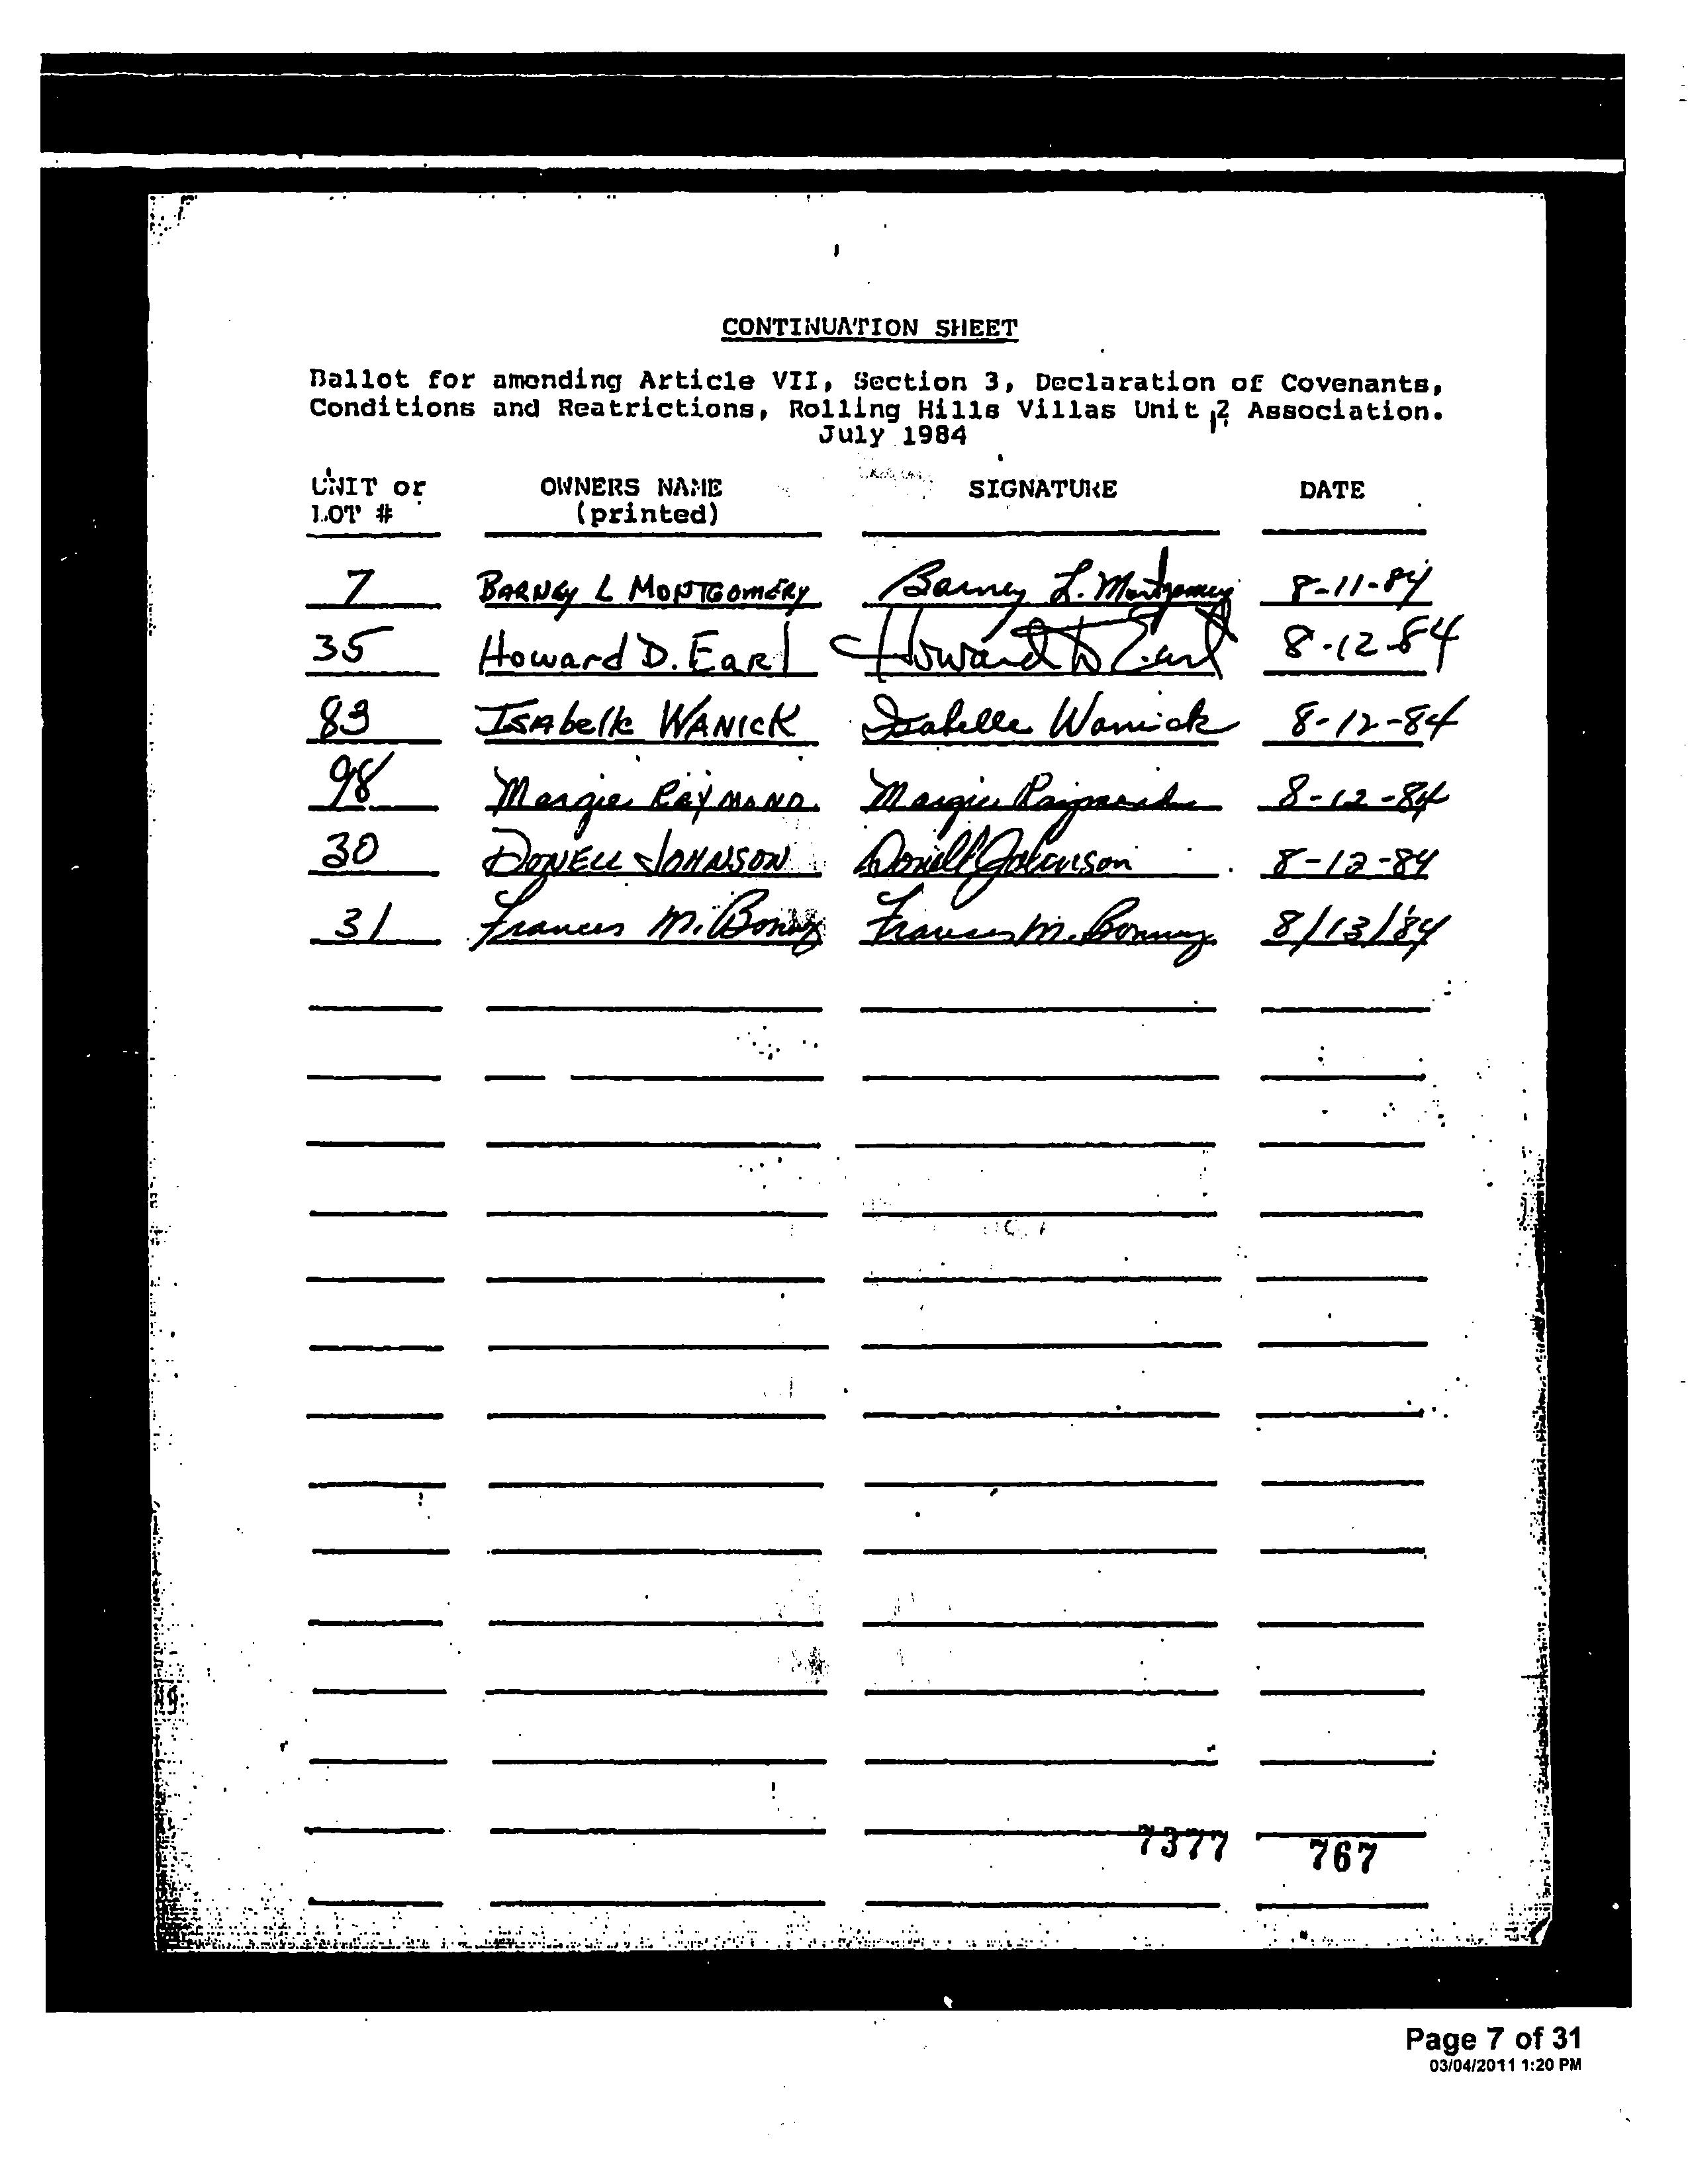 CONTINUATION SHEET
Ballot for amending Article VII, Section 3, Declaration of Covenants,
Conditions and Reatrictions, Rolling Hills Villas Unit 2 Association.
July 1984
UNIT or OWNERS NAME SIGNATURE DATE
LOT # (printed)
7 BARNEY L MONTGOMERY Barney L. Montgomery 8-11-84
35 Howard D. Earl Howard D Earl 8-12-84
83 ISAbelle WANICK Isabelle Wanick 8-12-84
98 Margie RAYMOND Margie Raymond 8-12-84
30 DONELL JOHNSON Donell Johnson 8-12-84
31 Frances M. Bonny Frances M. Bonny 8/13/84
7377 767
Page 7 of 31
03/04/2011 1:20 PM